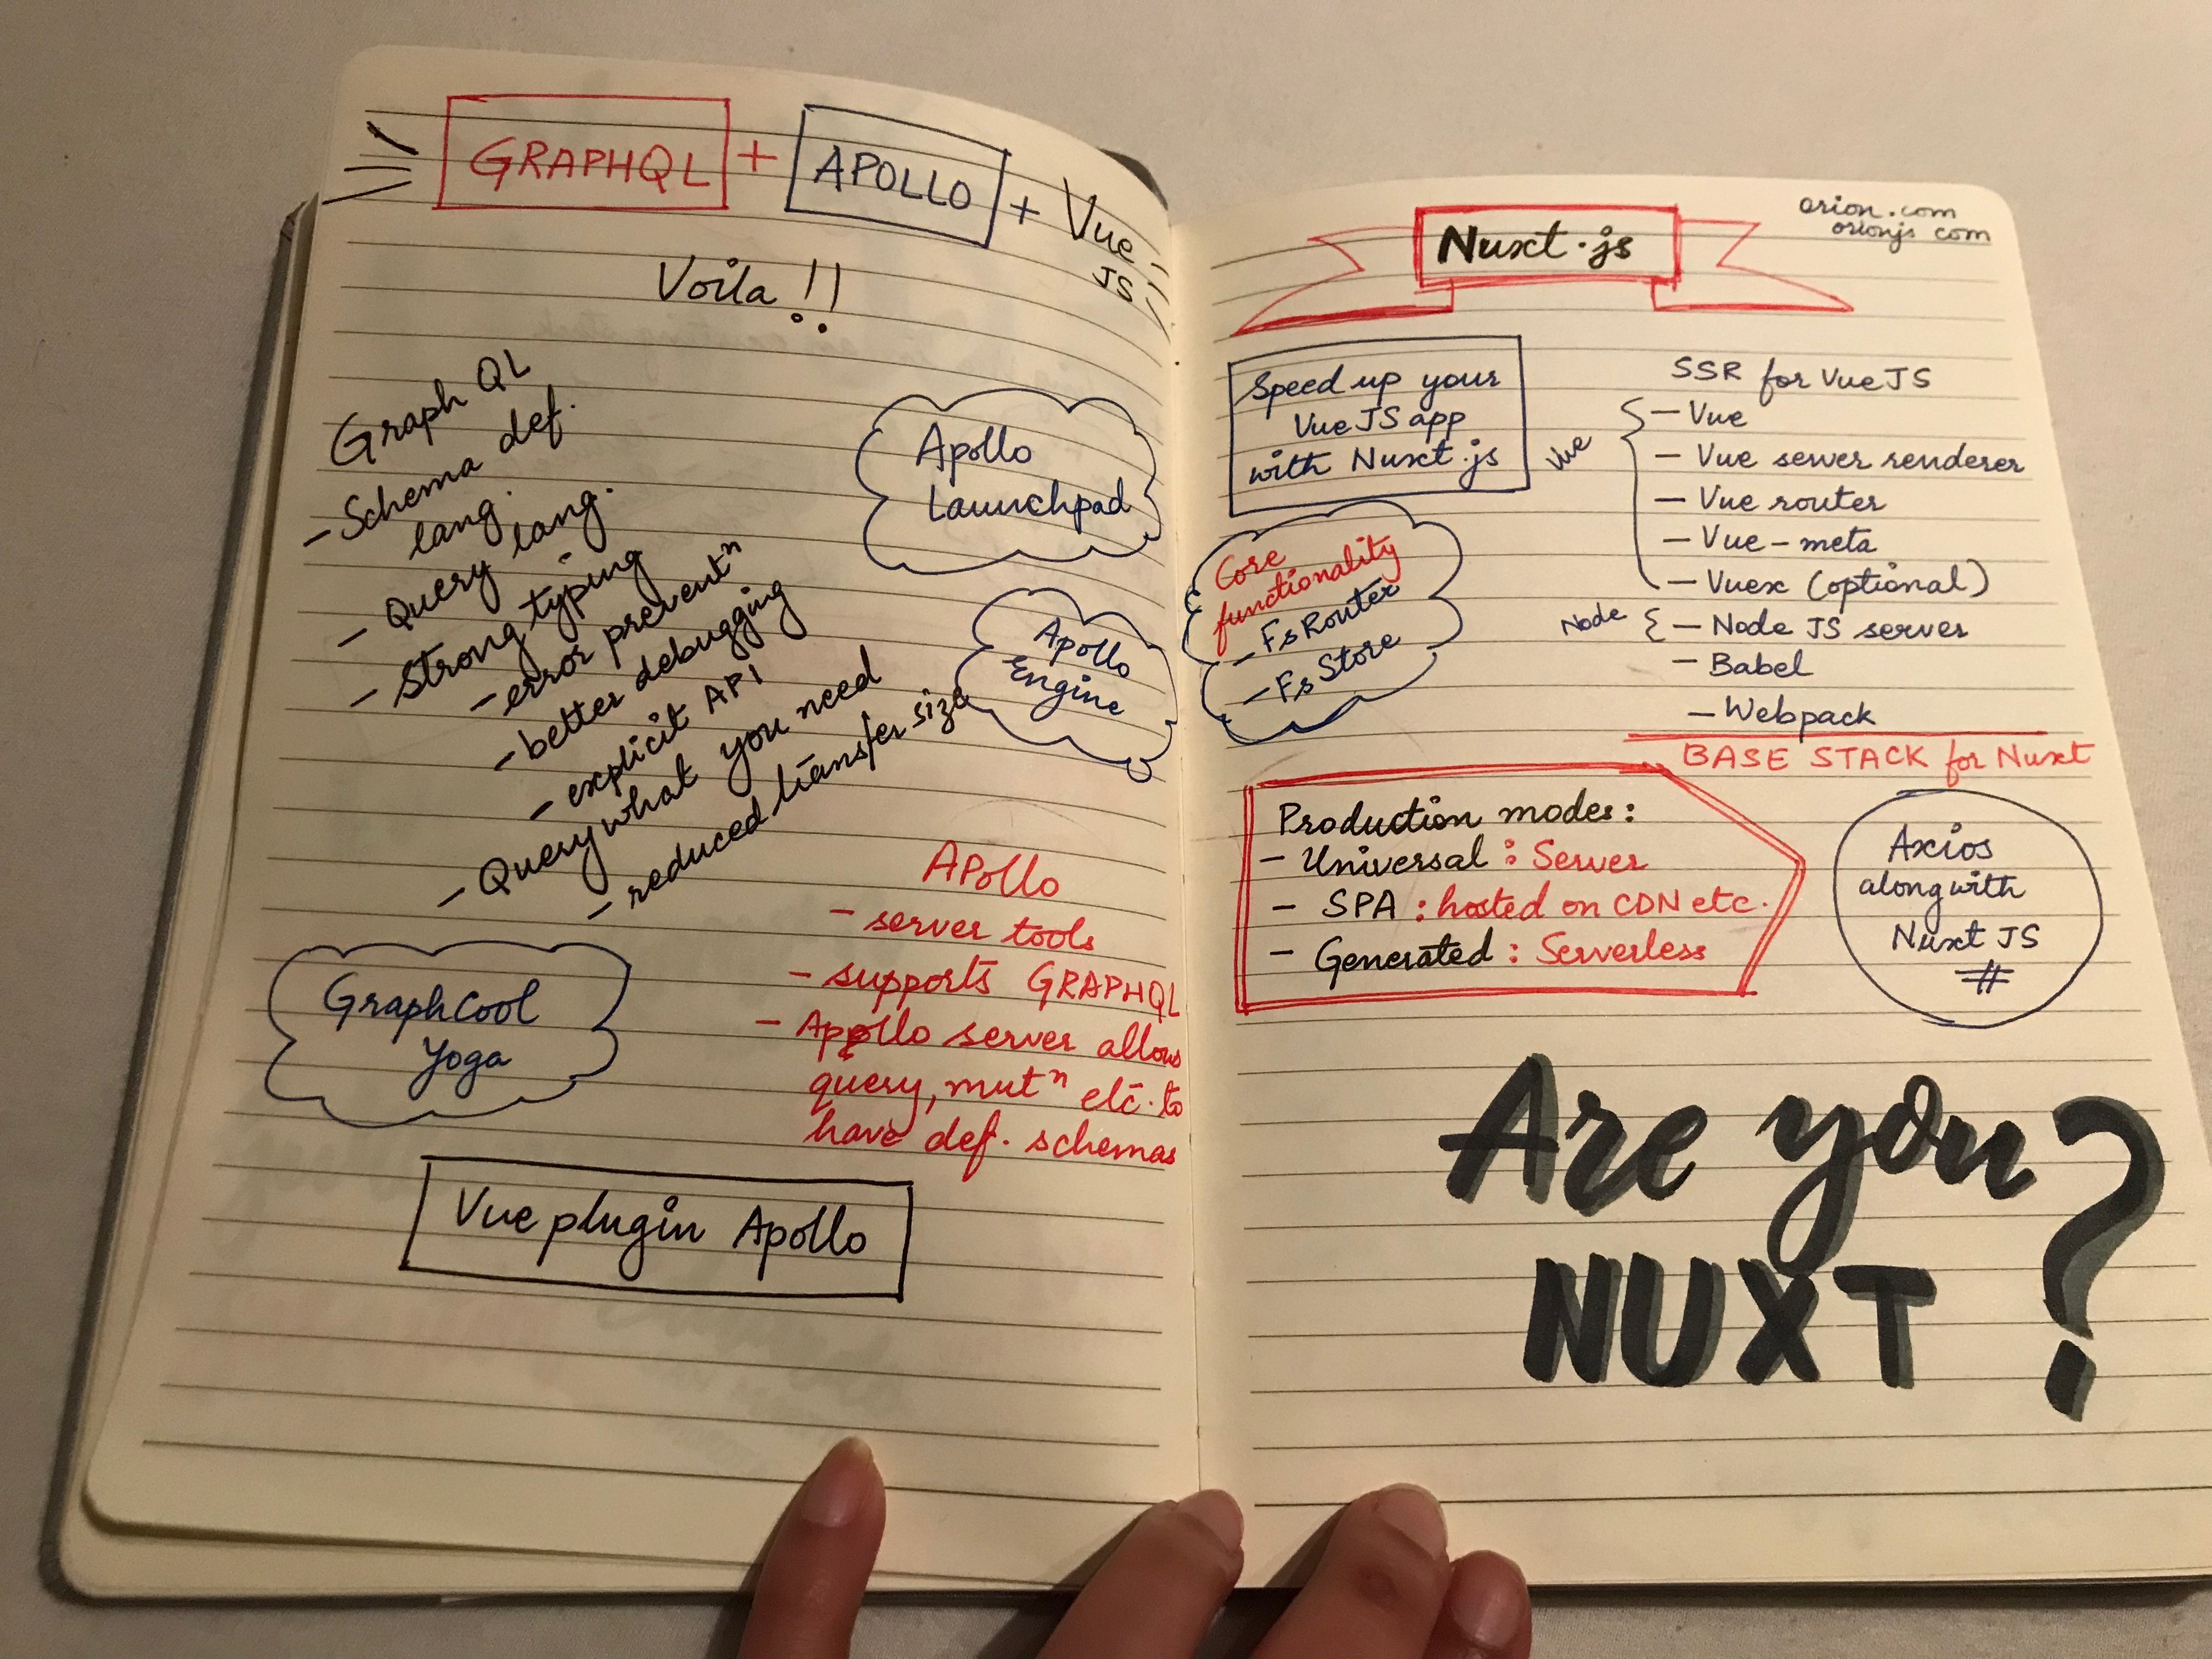 GRAPHQL + APOLLO + Vue
JS
Voila !!
Graph QL
- Schema def.
lang.
- Query lang.
- Strong typing
- error preventⁿ
- better debugging
- explicit API
- Query what you need
- reduced transfer size
Apollo
Launchpad
Apollo
Engine
APollo
- server tools
- supports GRAPHQL
- Apollo server allows
query, mutⁿ etc. to
have def. schemas
GraphCool
Yoga
Vue plugin Apollo
Nuxt.js
orion.com
orionjs com
Speed up your
Vue JS app
with Nuxt.js
SSR for VueJS
Vue
- Vue
- Vue server renderer
- Vue router
- Vue-meta
- Vuex (optional)
Node
- Node JS server
- Babel
- Webpack
BASE STACK for Nuxt
Core
functionality
- Fs Router
- Fs Store
Production modes:
- Universal : Server
- SPA : hosted on CDN etc.
- Generated : Serverless
Axios
along with
Nuxt JS
Are you
NUXT ?